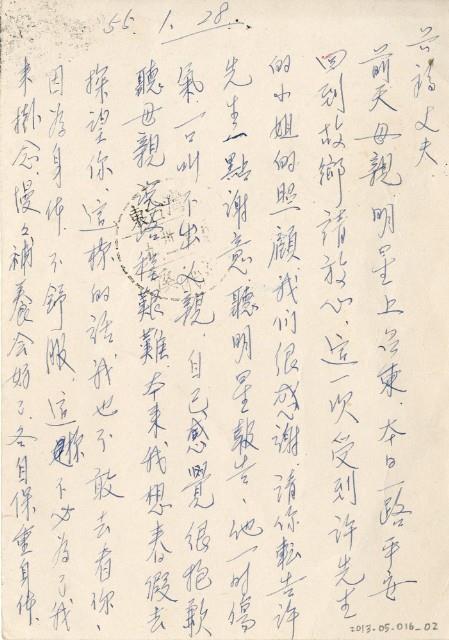 55. 1. 28.
丈夫
前天母親明星上台東、本日一路平安
回到故鄉請放心、這一次受到許先生
的小姐的照顧我们很感謝、請你転告許
先生一點謝意、聽明星報告、他一时傷
氣、一口叫不出父親、自己感覺很抱歉
聽母親說路程艱難、本來我想春假去
探望你、這樣的話、我也不敢去看你、
因為身体不舒服、這你不必為了我
來掛念、慢々補養会好了、各自保重身体、
2013.05.016_02